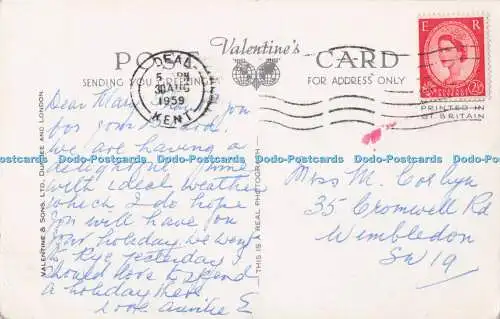 POST Valentine's CARD
SENDING YOU GREETING
FOR ADDRESS ONLY
DEAL
5 PM
30 AUG
1959
KENT
E R
POSTAGE REVENUE
2½D
PRINTED IN
GT BRITAIN
Dear Mary you
for your card.
we are having a
delightful time
with ideal weather
which I do hope
you will have for
your holiday. we went
to Rye yesterday I
should love to spend
a holiday there
love Auntie E
VALENTINE & SONS, LTD., DUNDEE AND LONDON
THIS IS A REAL PHOTOGRAPH
Miss M. Corbyn
35 Cromwell Rd
Wimbledon
SW 19
Postcards-s.com Postcards-s.com Postcards-s.com Postcards-s.com Postcards-s.com Postcards-s.com